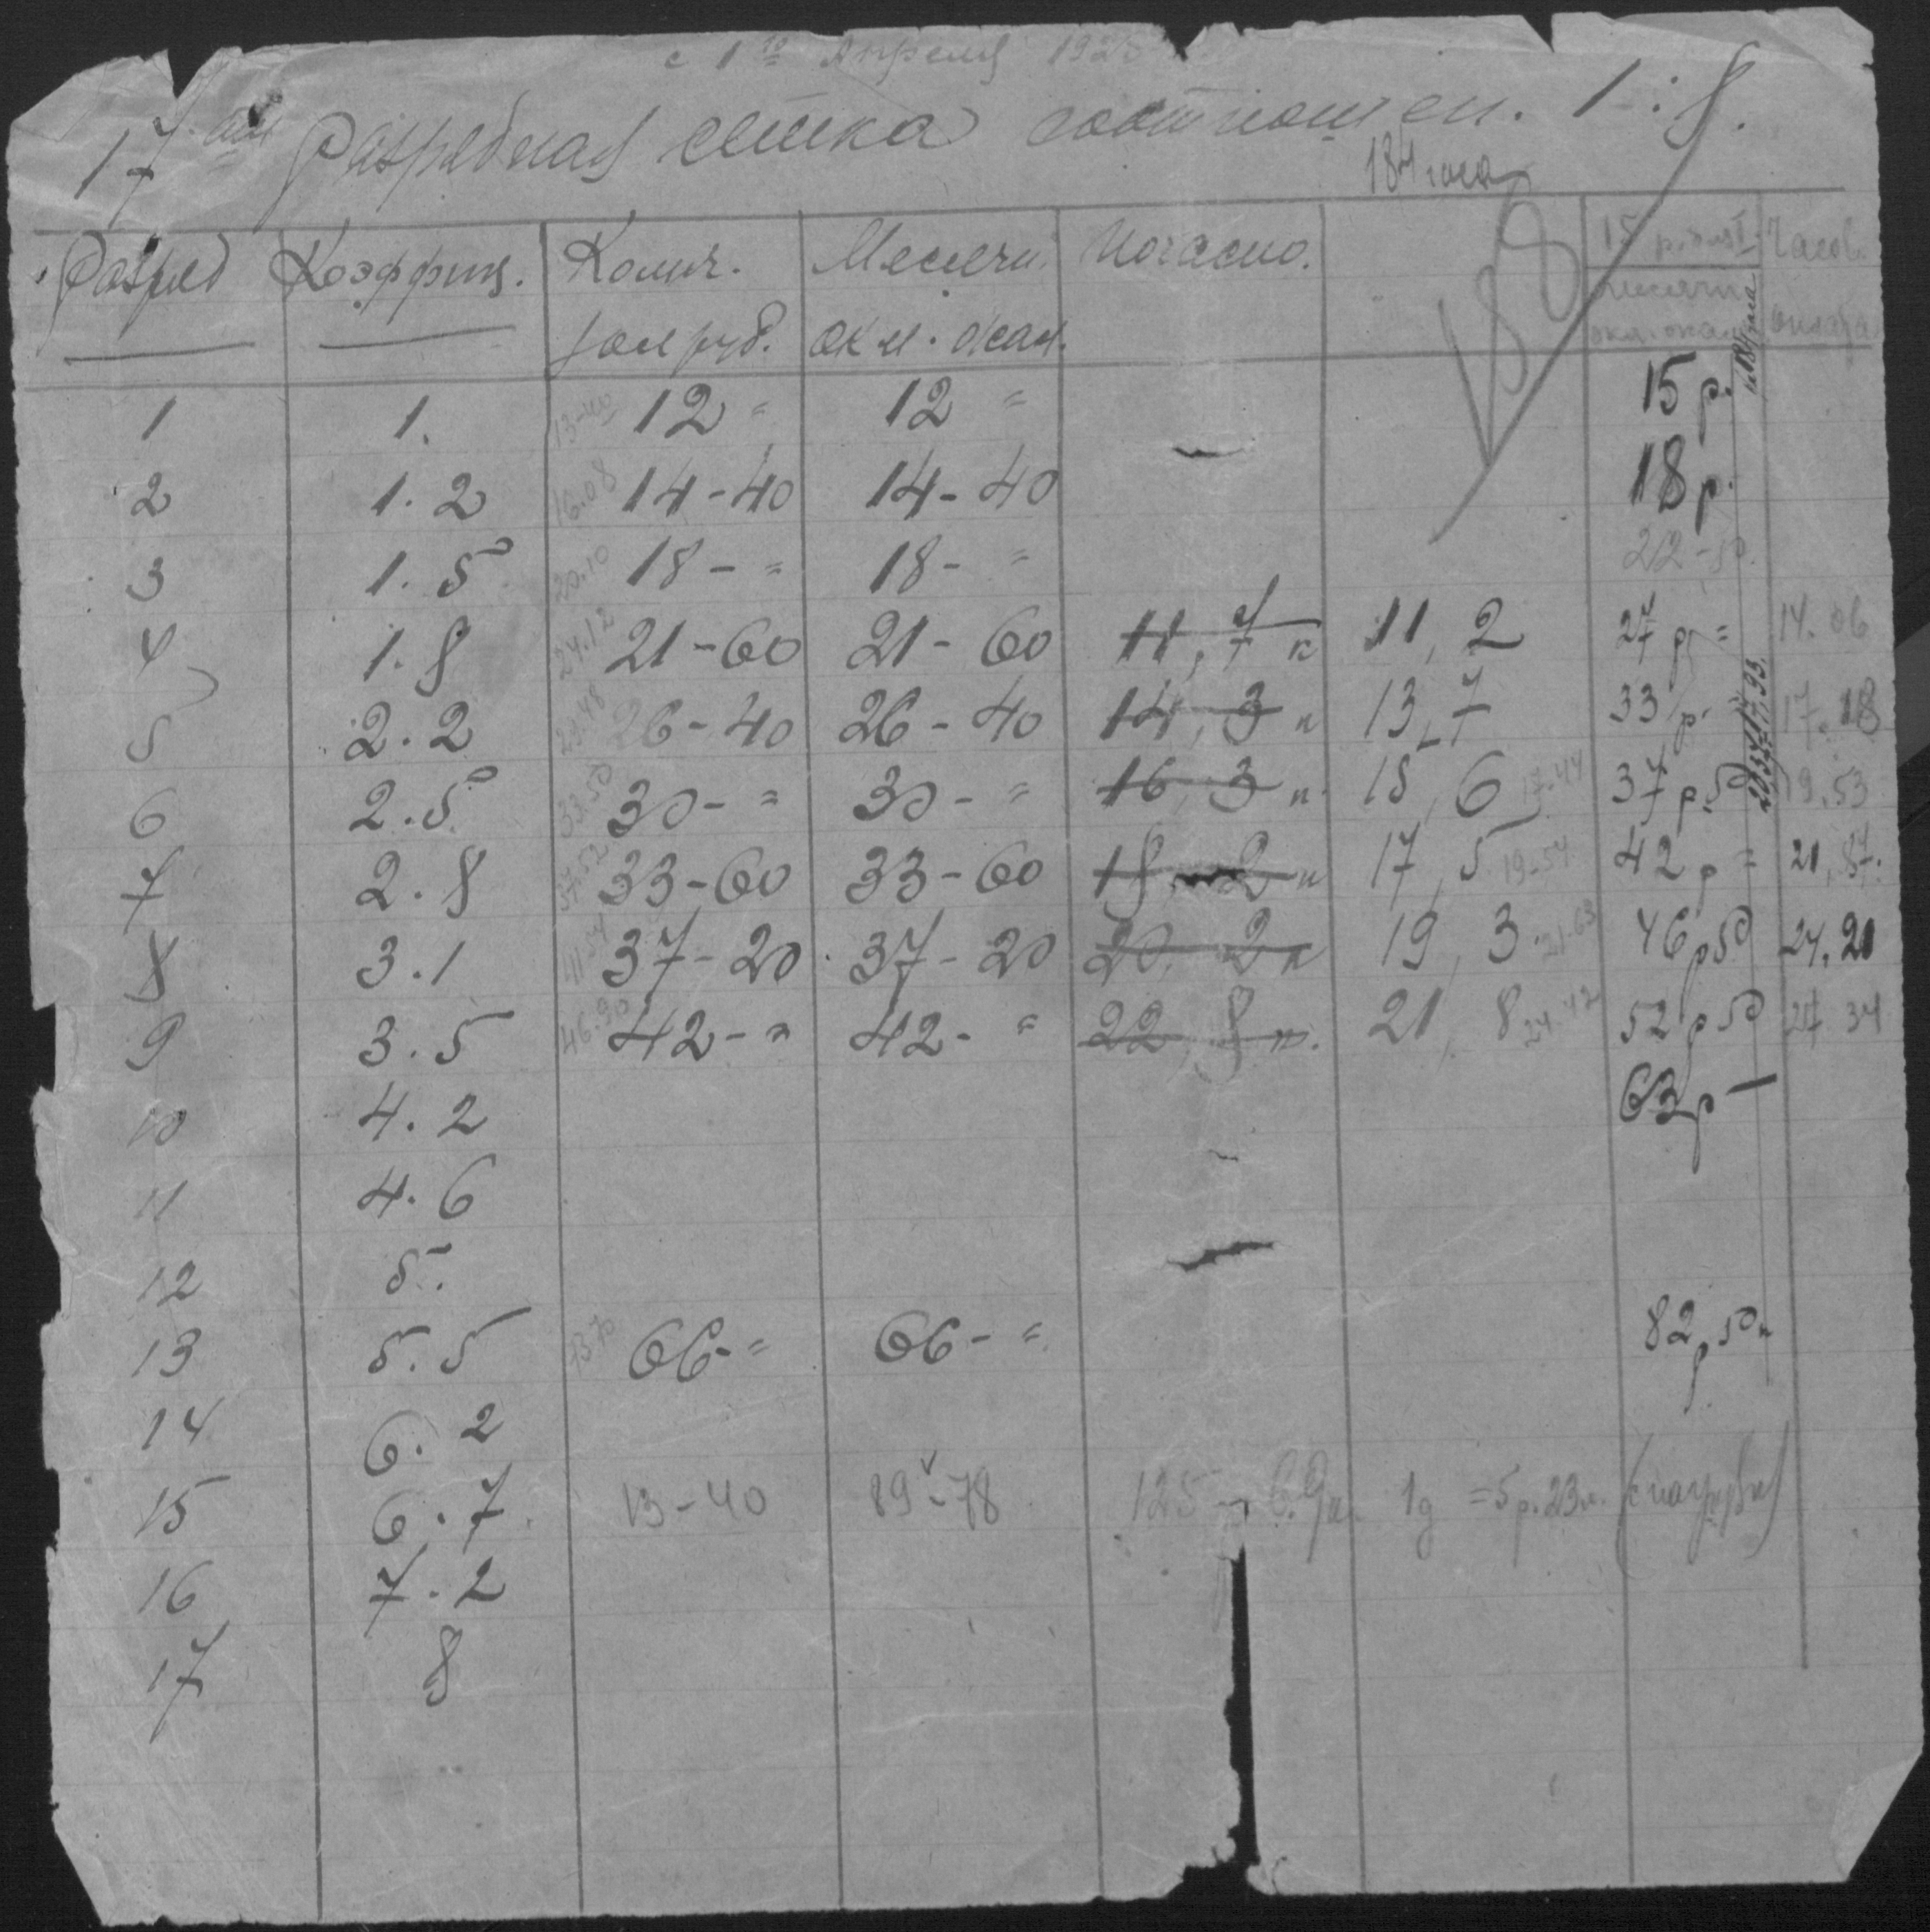 с 1го Апреля 192
17ая Разрядная сетка соотношен. 1:8.
184 часа
Разряд Коэффиц. Колич. Месячн. Почасно. 188 15 р. для I Часов.
зол руб. окл. окал. месячн. оплата
окл. окал.
1 1. 13-40 12 = 12 = 15 р.
2 1.2 16.08 14-40 14-40 18 р.
3 1.5 20.10 18-= 18-= 22-50
4 1.8 24.12 21-60 21-60 11,7 к 11,2 27 р = 14.06
5 2.2 29.48 26-40 26-40 14,3 к 13,7 33 р. = 17.18
6 2.5 33.50 30-= 30-= 16,3 к. 15,6 17-44 37 р. 50 19.53
7 2.8 37.52 33-60 33-60 18,2 к 17,5 19-54 42 р = 21,87.
8 3.1 41-54 37-20 37-20 20,2 к 19,3 21-63 46 р 50 24.20
9 3.5 46.90 42-= 42-= 22,8 к. 21,8 24.42 52 р 50 27 34
10 4.2 63 р —
11 4.6
12 5.
13 5.5 73.70 66-= 66-= 82 р 50 к
14 6.2
15 6.7 13-40 89-78 125 1д = 5 р. 23 к. (с нагрузкой)
16 7.2
17 8